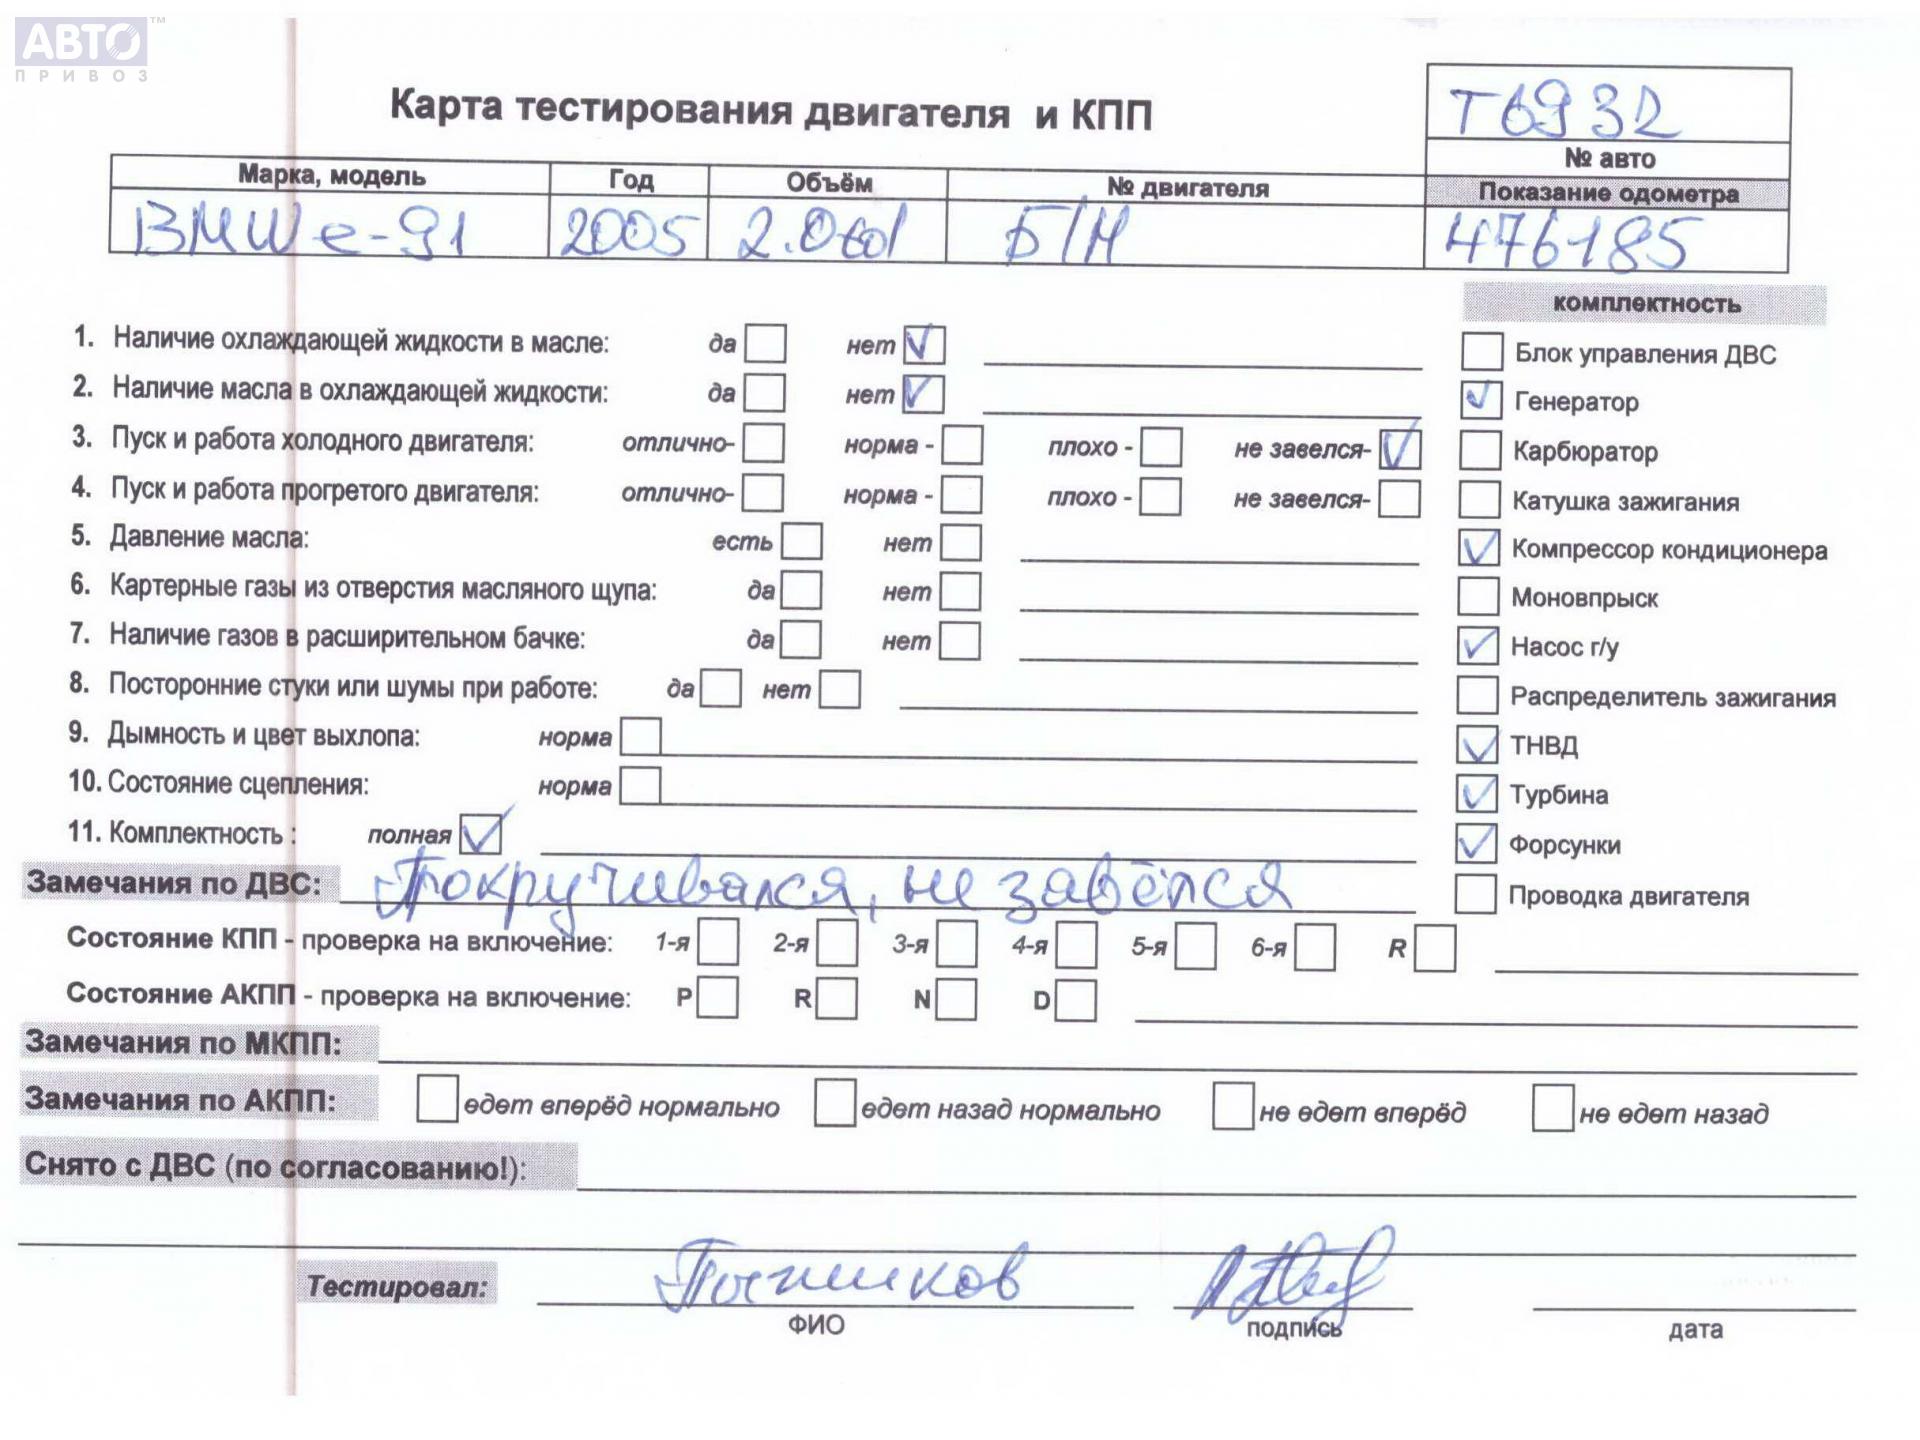 АВТО™
ПРИВОЗ
Карта тестирования двигателя и КПП
Т6932
№ авто
Марка, модель Год Объём № двигателя Показание одометра
BMW e-91 2005 2.0 Б/Н 476185
комплектность
1. Наличие охлаждающей жидкости в масле: да нет ✓
Блок управления ДВС
2. Наличие масла в охлаждающей жидкости: да нет ✓
✓ Генератор
3. Пуск и работа холодного двигателя: отлично- норма - плохо - не завелся- ✓
Карбюратор
4. Пуск и работа прогретого двигателя: отлично- норма - плохо - не завелся-
Катушка зажигания
5. Давление масла: есть нет
✓ Компрессор кондиционера
6. Картерные газы из отверстия масляного щупа: да нет
Моновпрыск
7. Наличие газов в расширительном бачке: да нет
✓ Насос г/у
8. Посторонние стуки или шумы при работе: да нет
Распределитель зажигания
9. Дымность и цвет выхлопа: норма
✓ ТНВД
10. Состояние сцепления: норма
✓ Турбина
11. Комплектность : полная ✓
✓ Форсунки
Замечания по ДВС: Покручивался, не завёлся
Проводка двигателя
Состояние КПП - проверка на включение: 1-я 2-я 3-я 4-я 5-я 6-я R
Состояние АКПП - проверка на включение: P R N D
Замечания по МКПП:
Замечания по АКПП: едет вперёд нормально едет назад нормально не едет вперёд не едет назад
Снято с ДВС (по согласованию!):
Тестировал:
ФИО подпись дата